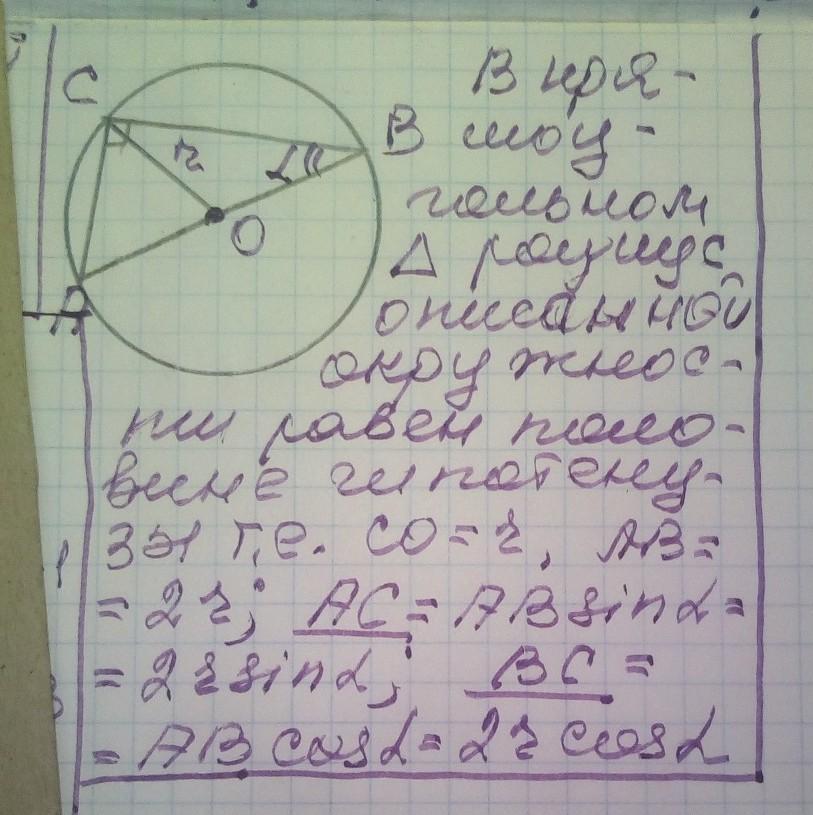 C
B
r
α
O
A
В пря-
моу-
гольном
Δ радиус
описанной
окружнос-
ти равен поло-
вине гипотену-
зы т.е. CO = r, AB =
= 2r; AC = AB sinα =
= 2r sinα; BC =
= AB cosα = 2r cosα